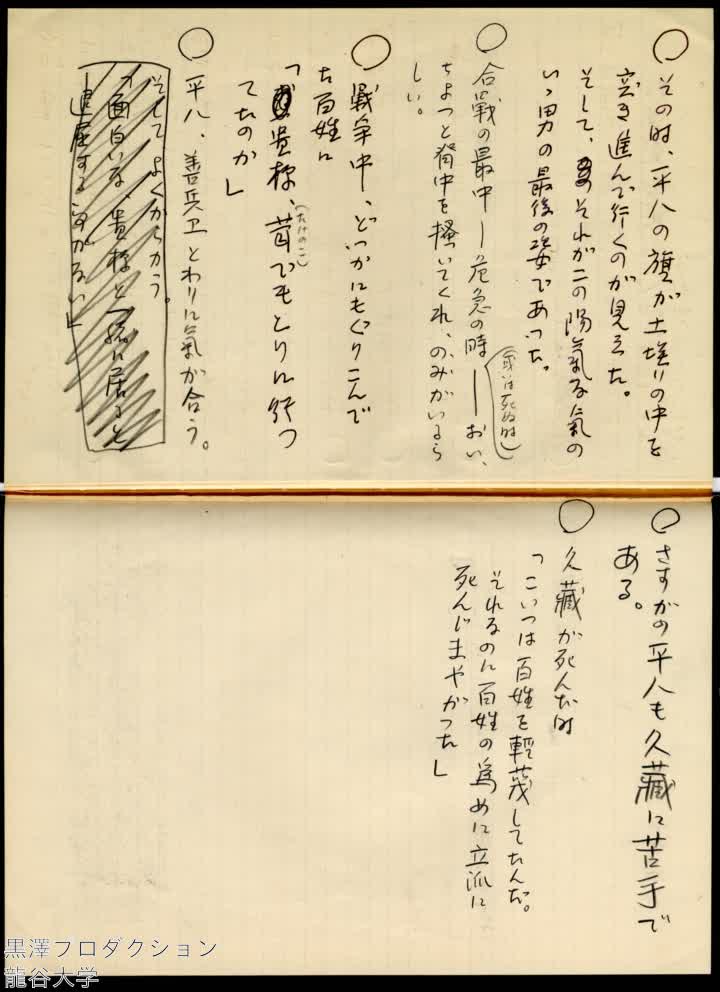 ○ その時、平八の旗が土埃りの中を
突き進んで行くのが見えた。
そして、それがこの陽氣な氣の
いゝ男の最後の姿であつた。
○ 合戰の最中―危急の時――おい、
(或いは死ぬ時)
ちよつと背中を掻いてくれ、のみがいるら
しい。
○ 戦争中、どつかにもぐりこんで
た百姓に
「貴様、茸でもとりに行つ
(たけのこ)
てたのか」
○ 平八、善兵卫とわりに氣が合う。
そして よくからかう。
「面白いな、貴様と一緒に居ると
退屈する がない」
○ さすがの平八も久藏は苦手で
ある。
○ 久藏が死んだ時
「こいつは百姓を輕蔑してたんだ。
それなのに百姓の為めに立派に
死んじまやがつた」
黒澤プロダクション
龍谷大学